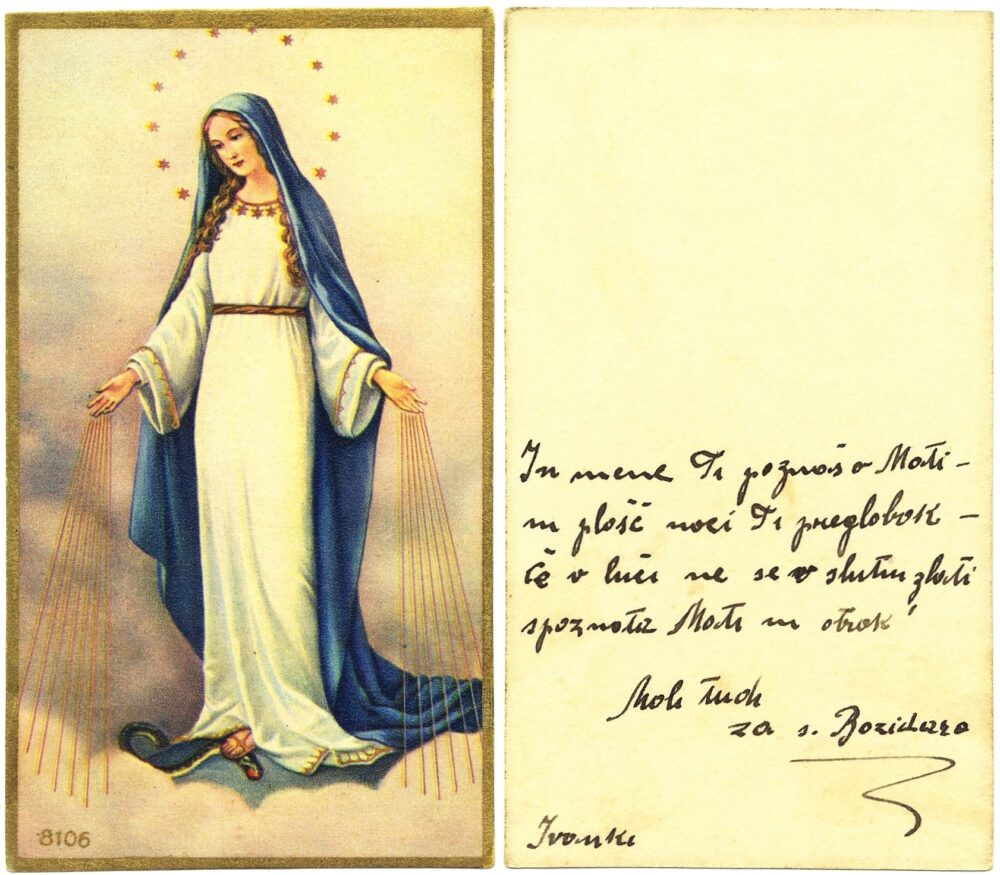 8106
In mene Ti poznaš o Mati –
in plašč noči Ti preglobok –
Če v luči ne se v slutnji zlati
spoznata Mati in otrok!
Moli tudi
za s. Bozidaro
Ivanki